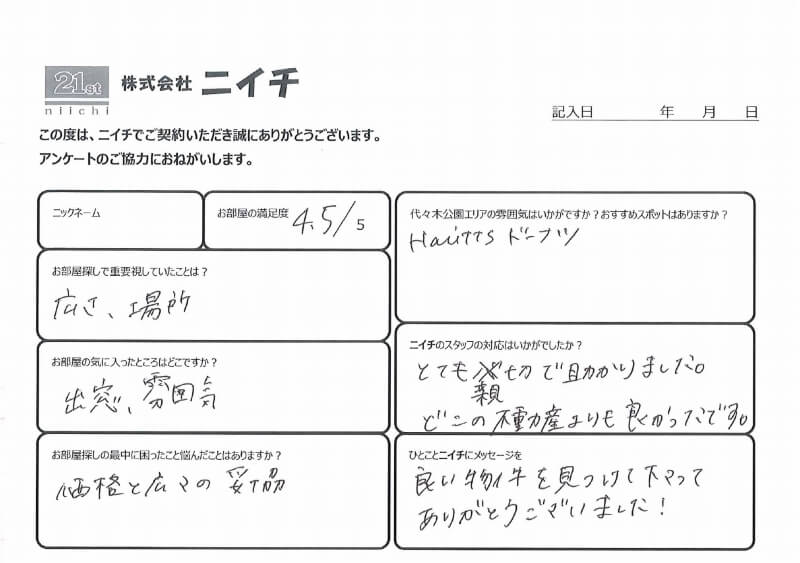 21st
niichi
株式会社 ニイチ
記入日 年 月 日
この度は、ニイチでご契約いただき誠にありがとうございます。
アンケートのご協力におねがいします。
ニックネーム
お部屋の満足度 4.5/5
お部屋探しで重要視していたことは？
広さ、場所
お部屋の気に入ったところはどこですか？
出窓、雰囲気
お部屋探しの最中に困ったこと悩んだことはありますか？
価格と広さの妥協
代々木公園エリアの雰囲気はいかがですか？おすすめスポットはありますか？
Haritts ドーナツ
ニイチのスタッフの対応はいかがでしたか？
とても親切で助かりました。
どこの不動産よりも良かったです。
ひとことニイチにメッセージを
良い物件を見つけて下さって
ありがとうございました！